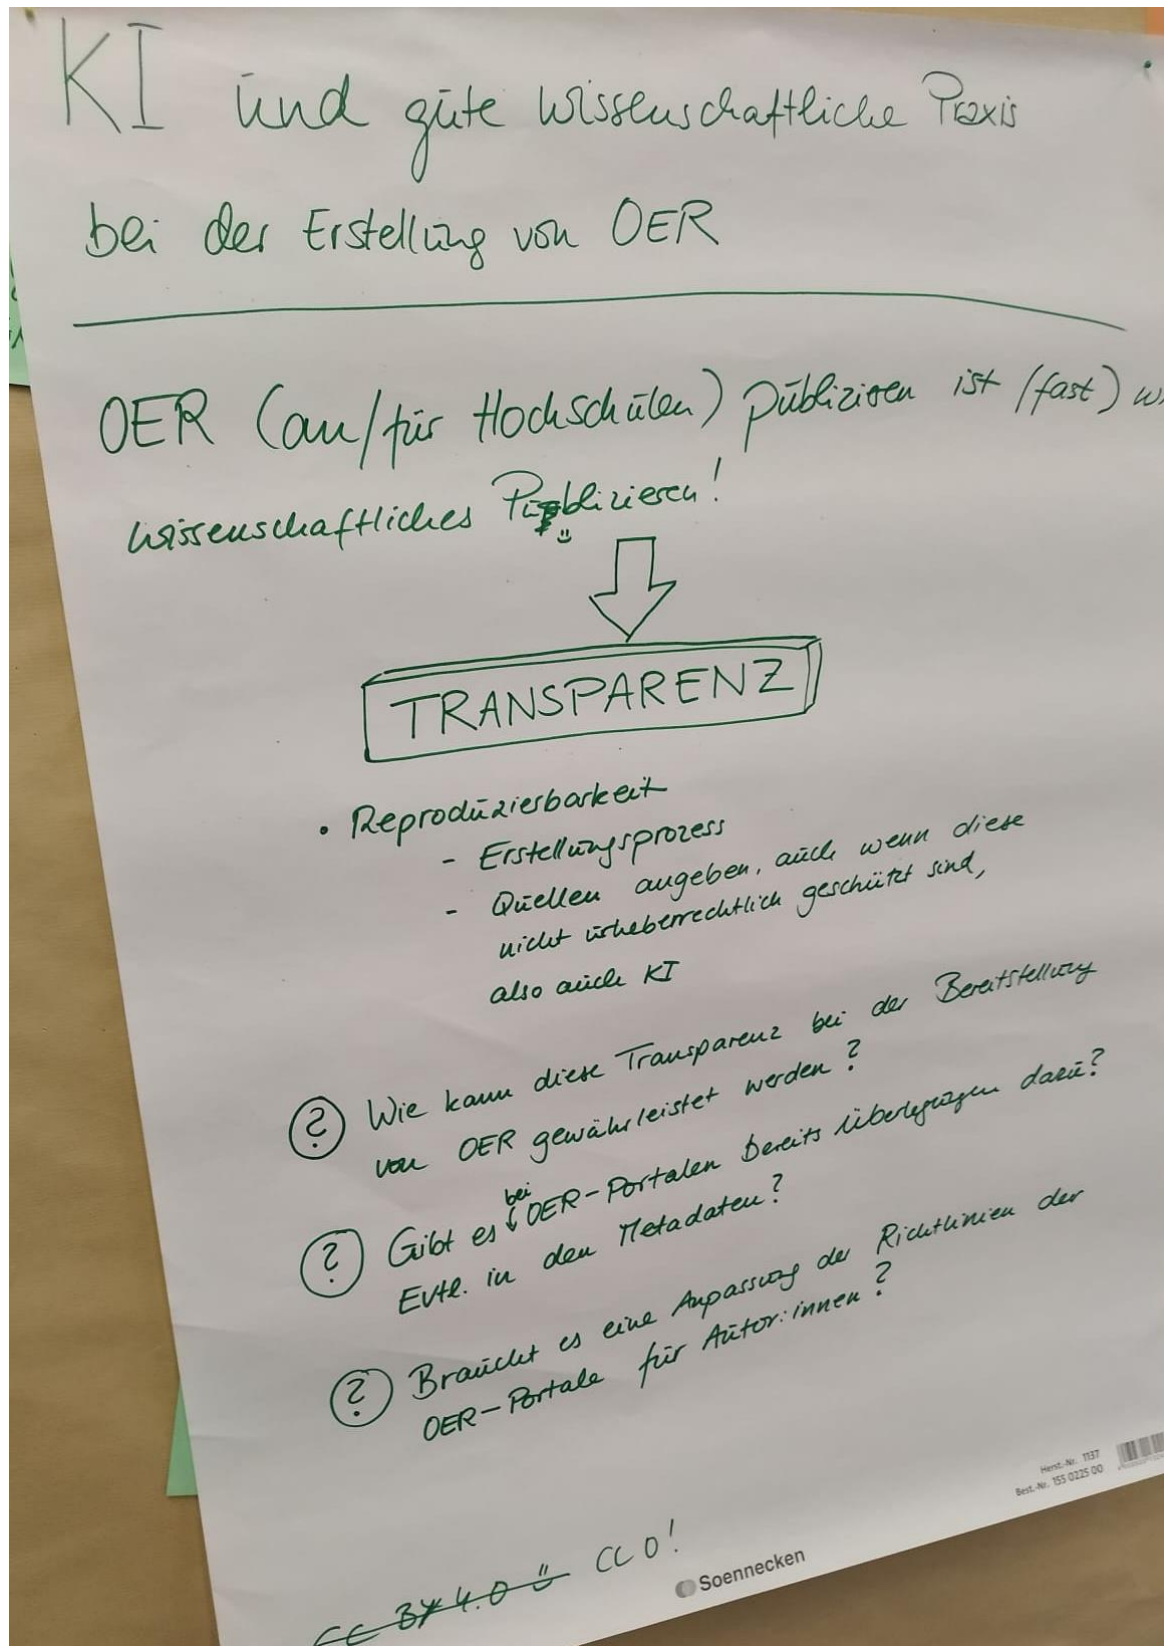 KI und gute wissenschaftliche Praxis
bei der Erstellung von OER
OER (an/für Hochschulen) publizieren ist (fast) w
wissenschaftliches Publizieren!
TRANSPARENZ
• Reproduzierbarkeit
- Erstellungsprozess
- Quellen angeben, auch wenn diese
nicht urheberrechtlich geschützt sind,
also auch KI
? Wie kann diese Transparenz bei der Bereitstellung
von OER gewährleistet werden?
? Gibt es bei OER-Portalen bereits Überlegungen dazu?
Evtl. in den Metadaten?
? Braucht es eine Anpassung der Richtlinien der
OER-Portale für Autor:innen?
Herst.-Nr. 1137
Best.-Nr. 155 0225 00
CC BY 4.0 CC 0!
Soennecken